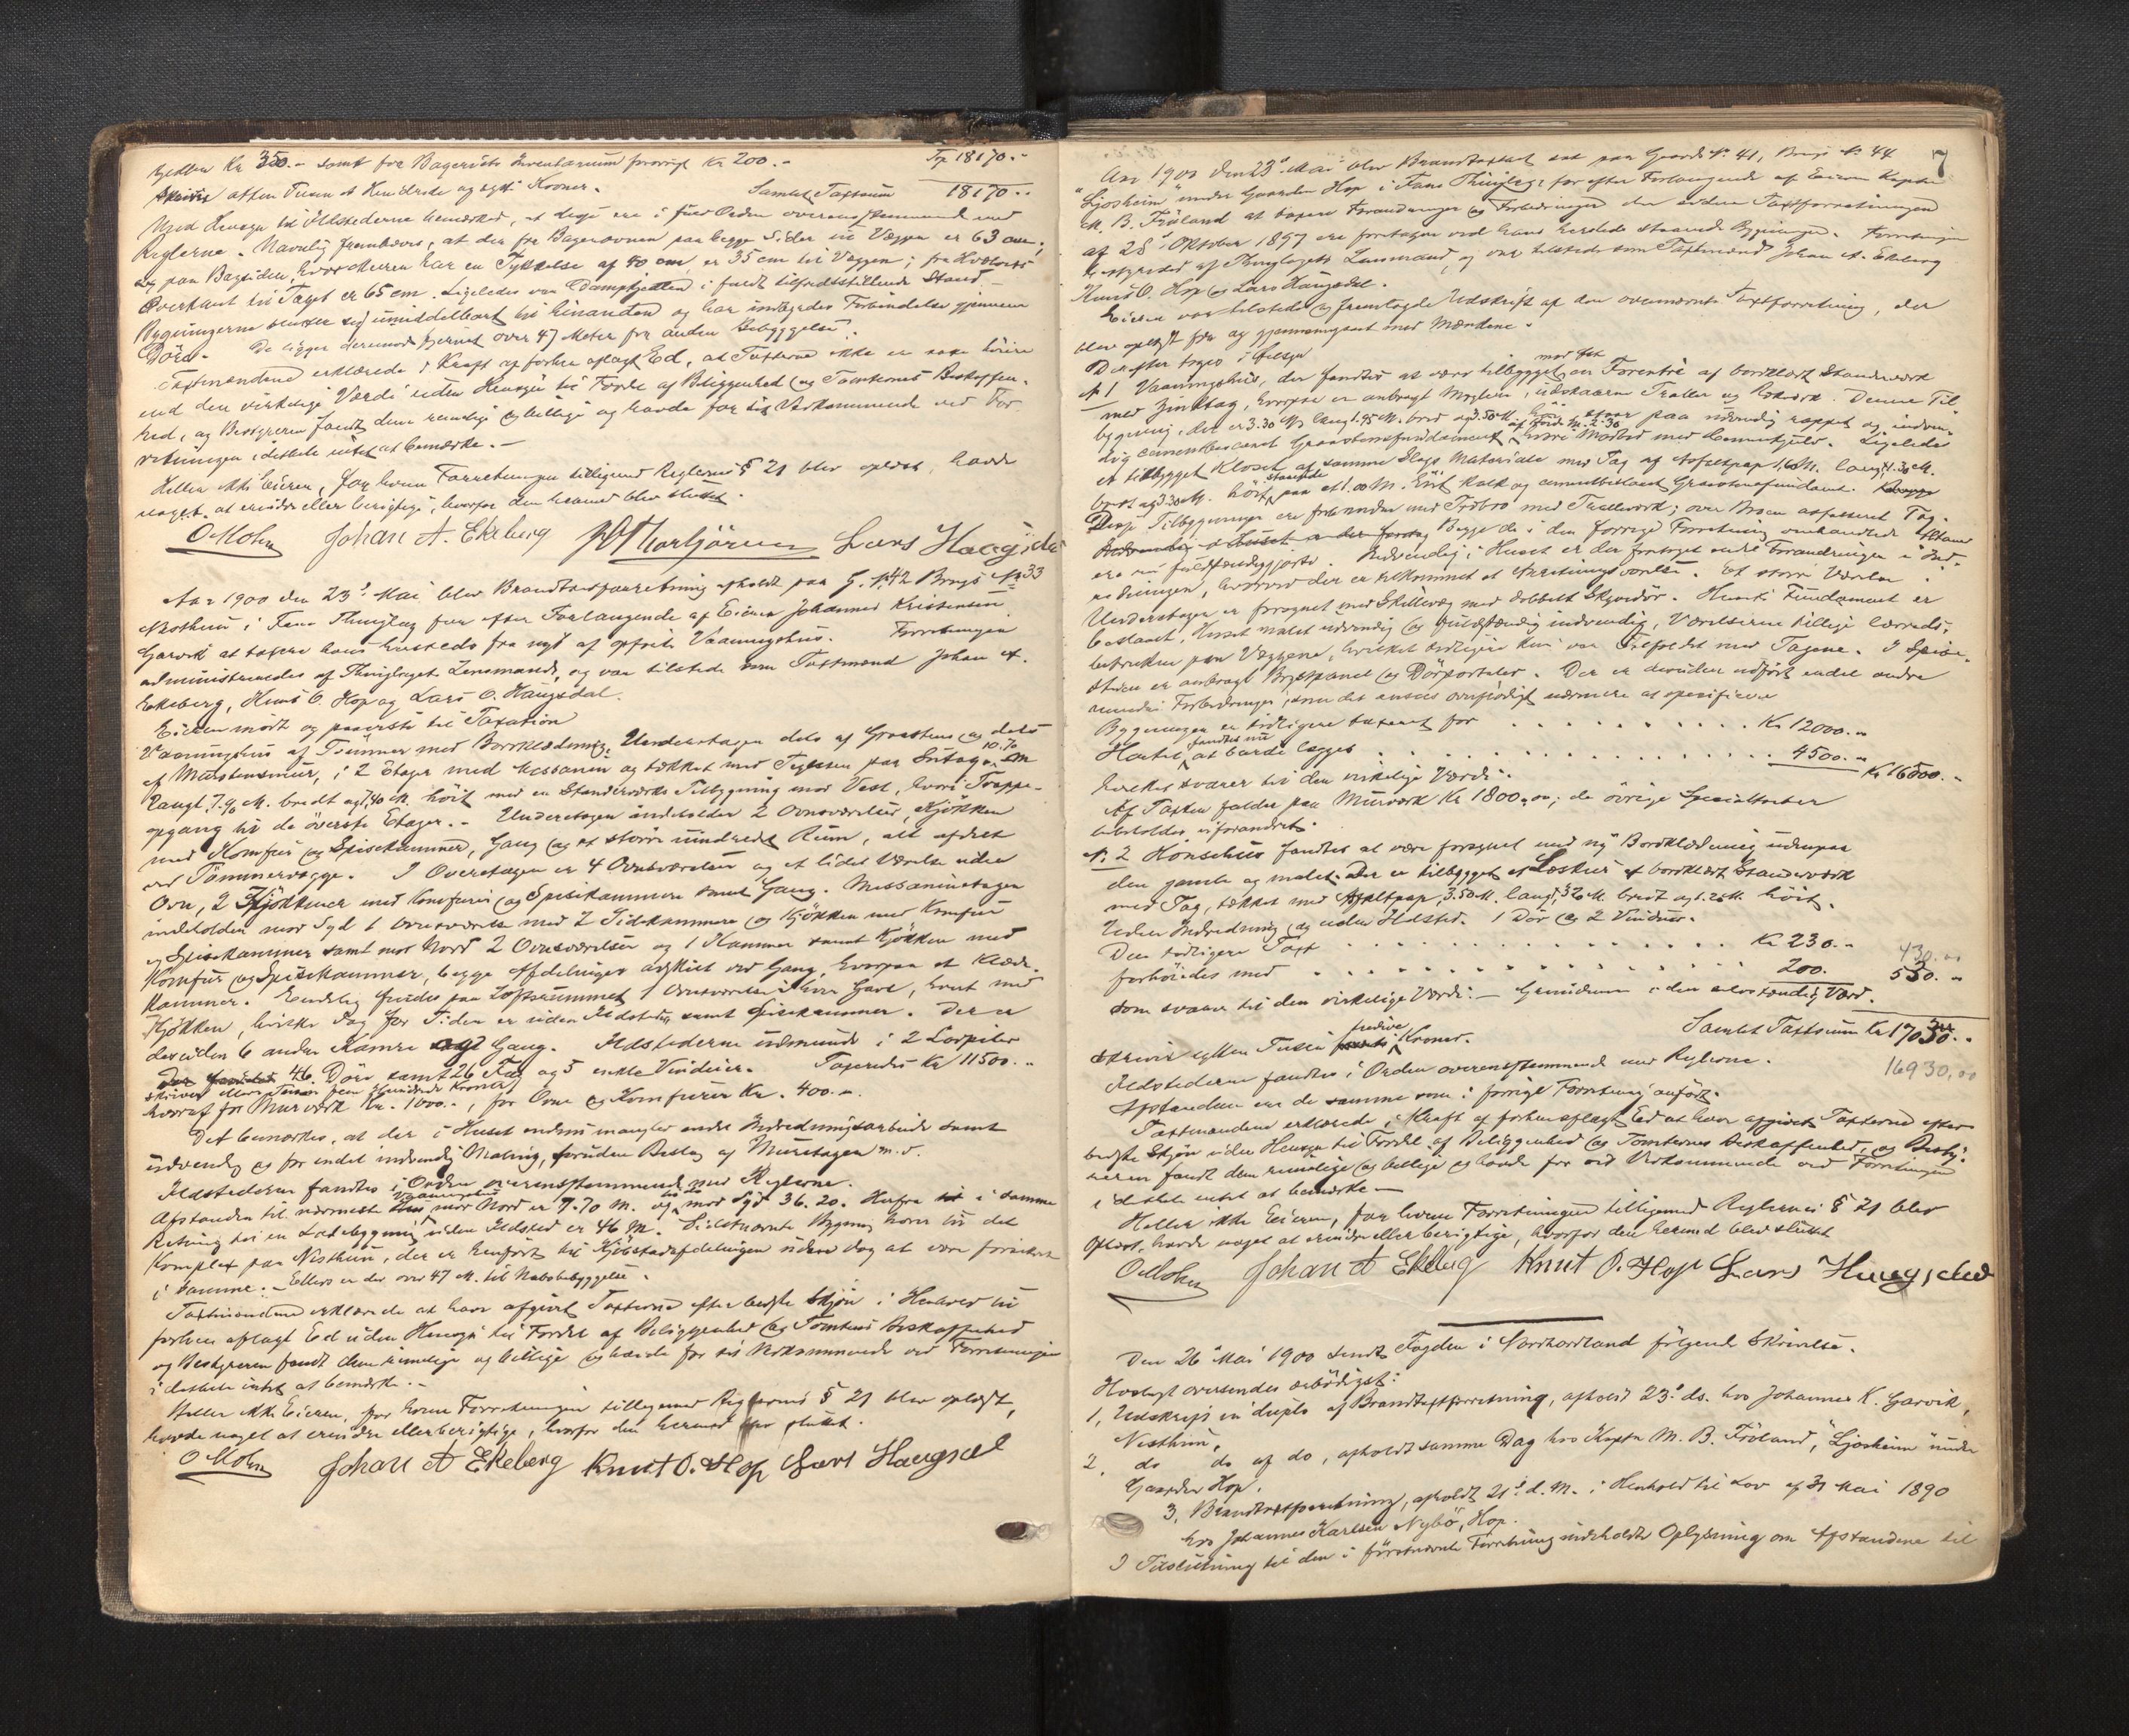 Kjedlen Kr 350.- samt for Bageriets Inventarium forøvrigt Kr 200.- Tp 18170.-
skriver atten Tusen et Hundrede og sytti Kroner. Samlet Taxtsum 18170..
Med Hensyn til Ildstederne bemærkes, at disse ere i fuld Orden overensstemmende med
Reglerne. Navnlig fremhæves, at der fra Bagerovnen paa begge Sider til Væggen er 63 cm;
og paa Bagsiden, hvor Muren har en Tykkelse af 40 cm er 35 cm til Væggen; fra Hvælvets
Overkant til Taget er 65 cm. Ligeledes var Dampkjedlen i fuldt tilfredsstillende Stand.
Bygningerne slutter sig umiddelbart til hinanden og har indbyrdes Forbindelse gjennem
Døre. De ligger derimod fjernet over 47 Meter fra anden Bebyggelse.
Taxtmændene erklærede i Kraft af forhen aflagt Ed, at Taxterne ikke er satte høiere
end den virkelige Værdi uden Hensyn til Fordel af Beliggenhed og Tomternes Beskaffen-
hed, og Bestyreren fandt dem rimelige og billige og havde for sit Vedkommende ved For-
retningen i det hele intet at bemærke. -
Heller ikke Eieren, for hvem Forretningen tilligemed Reglernes § 21 blev oplæst, havde
noget at erindre eller berigtige, hvorfor den hermed blev sluttet.
O Mohn Johan A. Ekeberg Lars Haugsdal
Aar 1900 den 23de Mai blev Brandtaxtforretning afholdt paa G. No 42 Brugs No 33
Nesthun i Fane Thinglag for efter Forlangende af Eieren Johannes Kristensen
Garvik at taxere hans hersteds fra nyt af opførte Vaaningshus. Forretningen
administreredes af Thinglagets Lensmand, og var tilstede som Taxtmænd Johan A.
Ekeberg, Knut O. Hop og Lars O. Haugsdal.
Eieren mødt og paaviste til Taxation
Vaaningshus af Tømmer med Bordklædning, Underetagen dels af Graasten og dels
af Murstensmur, i 2 Etager med Messanin og tækket med Tegelsten paa Sutag. 10.70 m
langt, 7.90 M. bredt og 7.40 M. høit med en Standerværks Tilbygning mod Vest, hvori Trappe-
opgang til de øverste Etager. - Underetagen indeholder 2 Ovnsværelser, Kjøkken
med Komfur og Spisekammer, Gang og et større uindredet Rum, alt afdelt
ved Tømmervægge. I Overetagen er 4 Ovnsværelser og et lidet Værelse uden
Ovn, 2 Kjøkkener med Komfurer og Spisekammere samt Gang. Messaninetagen
indeholder mod Syd 1 Ovnsværelse med 2 Sidekammere og Kjøkken med Komfur
og Spisekammer samt mod Nord 2 Ovnsværelser og 1 Kammer samt Kjøkken med
Komfur og Spisekammer, begge Afdelinger adskilt ved Gang, hvorpaa et Klæde-
kammer. Endelig findes paa Loftsrummet 1 Ovnsværelse i hver Gavl, hvert med
Kjøkken, hvilke dog for Tiden er uden Ildsted, samt Spisekammer. Der er
desuden 6 andre Kamre og Gang. Ildstederne udmunde i 2 Lovpiber
46 Døre samt 26 Fag og 5 enkle Vinduer. Taxeredes Kr 11500..
skriver elleve Tusen fem Hundrede Kroner
hvoraf for Murværk Kr. 1000.-, for Ovne og Komfurer Kr. 400.-.
Det bemærkes, at der i Huset endnu mangler endel Indredningsarbeide samt
udvendig og for endel indvendig Maling, foruden Beslag af Muretagen m.v.
Ildstederne fandtes i Orden overensstemmende med Reglerne.
Afstanden til nærmeste Vaaningshus mod Nord er 9.70 M. og til do mod Syd 36.20. Herfra i samme
Retning til en Ladebygning uden Ildsted er 46 M. Sidstnævnte Bygning hører til det
Kompleks paa Nesthun, der er henført til Kjøbstadafdelingen uden dog at være forsikret
i samme. - Ellers er der over 47 M. til Nabobebyggelse.
Taxtmændene erklærede at have afgivet Taxterne efter bedste Skjøn i Henhold til
forhen aflagt Ed uden Hensyn til Fordel af Beliggenhed og Tomtens Beskaffenhed
og Bestyreren fandt dem rimelige og billige og havde for sit Vedkommende ved Forretningen
i det hele intet at bemærke. -
Heller ikke Eieren, for hvem Forretningen tilligemed Reglernes § 21 blev oplæst,
havde noget at erindre eller berigtige, hvorfor den hermed blev sluttet.
O Mohn Johan A Ekeberg Knut O. Hop Lars Haugsdal
7
Aar 1900 den 23de Mai blev Brandtaxt sat paa Gaards No. 41, Brugs No. 44
"Ljosheim" under Gaarden Hop i Fane Thinglag for efter Forlangende af Eieren Kaptein
M. B. Frøland at taxere Forandringer og Forbedringer der siden Taxtforretningen
af 28de Oktober 1897 ere foretagne ved hans hersteds staaende Bygninger. Forretningen
bestyredes af Thinglagets Lensmand, og var tilstede som Taxtmænd Johan A. Ekeberg
Knut O. Hop og Lars Haugsdal.
Eieren var tilstede og fremlagde Udskrift af den ovennævnte Taxtforretning, der
blev oplæst for og gjennemgaaet med Mændene.
Derefter toges i Øiesyn
No 1 Vaaningshus, der fandtes at være tilbygget mod Øst en Forentré af bordklædt Standerværk
med Zinktag, hvorpaa er anbragt Møglen, udskaarne Traller og Rækværk. Denne Til-
bygning, der er 3.30 M. langt, 1.95 M. bred og 3.50 M. høi, staar paa udvendig rappet og indven-
dig cementberappet Graastensfundament af Høide M. 2.30, hvori Madbod med Lemmekjelder. Ligeledes
et tilbygget Kloset af samme Slags Materiale med Tag af Asfaltpap 1.60 M. langt, 1.30 M.
bredt og 3.30 M. høit, staaende paa et 1.00 M. høit kalk og cementbeslaaet Graastensfundament.
Disse Tilbygninger ere forbundne med Trebro med Trallværk; over Broen asfalteret Tag.
Begge de i den forrige Forretning omhandlede Altaner
ere nu fuldstændiggjorte. Indvendig i Huset er der foretaget endel Forandringer i Ind-
redningen, hvorved der er tilkommet et Anretningsværelse. Et større Værelse i
Underetagen er forsynet med Skillevæg med dobbelt Skyvedør. Husets Fundament er
beslaaet. Huset malet udvendig og fuldstændig indvendig, Værelserne tillige lærreds-
betrukne paa Væggene, hvilket tidligere kun var Tilfældet med Tagene. I Spise-
stuen er anbragt Brystpanel og Dørportaler. Der er desuden udført endel andre
mindre Forbedringer, som det ansees overflødigt nærmere at specificere
Bygningen er tidligere taxeret for . . . . . . . . . . Kr 12000..
Hertil fandtes nu at burde lægges . . . . . . . . . . . . 4500.- Kr 16500.-
hvilket svarer til den virkelige Værdi.
Af Taxten falder paa Murværk Kr 1800.00; de øvrige Specialtaxter
beholdes uforandret.
No. 2 Hønsehus fandtes at være forsynet med ny Bordklædning udenpaa
den gamle og malet. Der er tilbygget et Læskur af bordklædt Standerværk
med Tag, tækket med Asfaltpap, 3.50 M. langt, 1.20 M. høit.
Uden Indredning og uden Ildsted. 1 Dør og 2 Vinduer.
Den tidligere Taxt . . . . . . . . . . . . Kr 230.-
forhøiedes med . . . . . . . . . . . . 200. 530.- 430.00
som svarer til den virkelige Værdi. - Grundmuren i den ubestændig Værd.
Samlet Taxtsum Kr 17030..
skriver sytten Tusen tredive Kroner.
16930,00
Ildstederne fandtes i Orden overensstemmende med Reglerne.
Afstandene ere de samme som i forrige Forretning anført.
Taxtmændene erklærede i Kraft af forhen aflagt Ed at have afgivet Taxterne efter
bedste Skjøn uden Hensyn til Fordel af Beliggenhed og Tomternes Beskaffenhed, og Besty-
reren fandt dem rimelige og billige og havde for sit Vedkommende ved Forretningen
i det hele intet at bemærke -
Heller ikke Eieren, for hvem Forretningen tilligemed Reglernes § 21 blev
oplæst, havde noget at erindre eller berigtige, hvorfor den hermed blev sluttet
O Mohn Johan A Ekeberg Knut O. Hop Lars Haugsdal
Den 26 Mai 1900 sendt Fogden i Nordhordland følgende Skrivelse.
Hoslagt oversendes ærbødigst:
1, Udskrift in duplo af Brandtaxtforretning, afholdt 23de ds. hos Johannes K. Garvik,
Nesthun,
2, do do af do, afholdt samme Dag hos Kaptn M. B. Frøland, "Ljosheim" under
Gaarden Hop.
3, Brandtaxtforretning, afholdt 21de d. M. i Henhold til Lov af 31 Mai 1890
hos Johannes Karlsen Nybø, Hop.
I Tilslutning til den i førstnævnte Forretning indeholdte Oplysning om Afstandene til